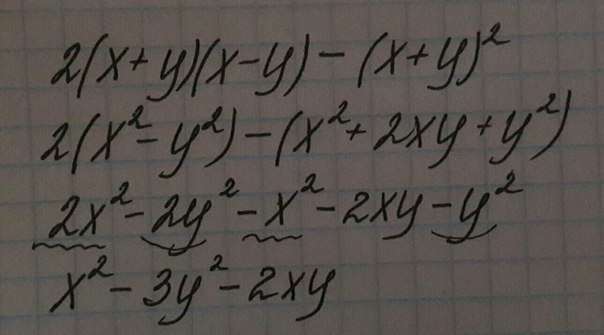 2(x+y)(x-y)-(x+y)²
2(x²-y²)-(x²+2xy+y²)
2x²-2y²-x²-2xy-y²
x²-3y²-2xy